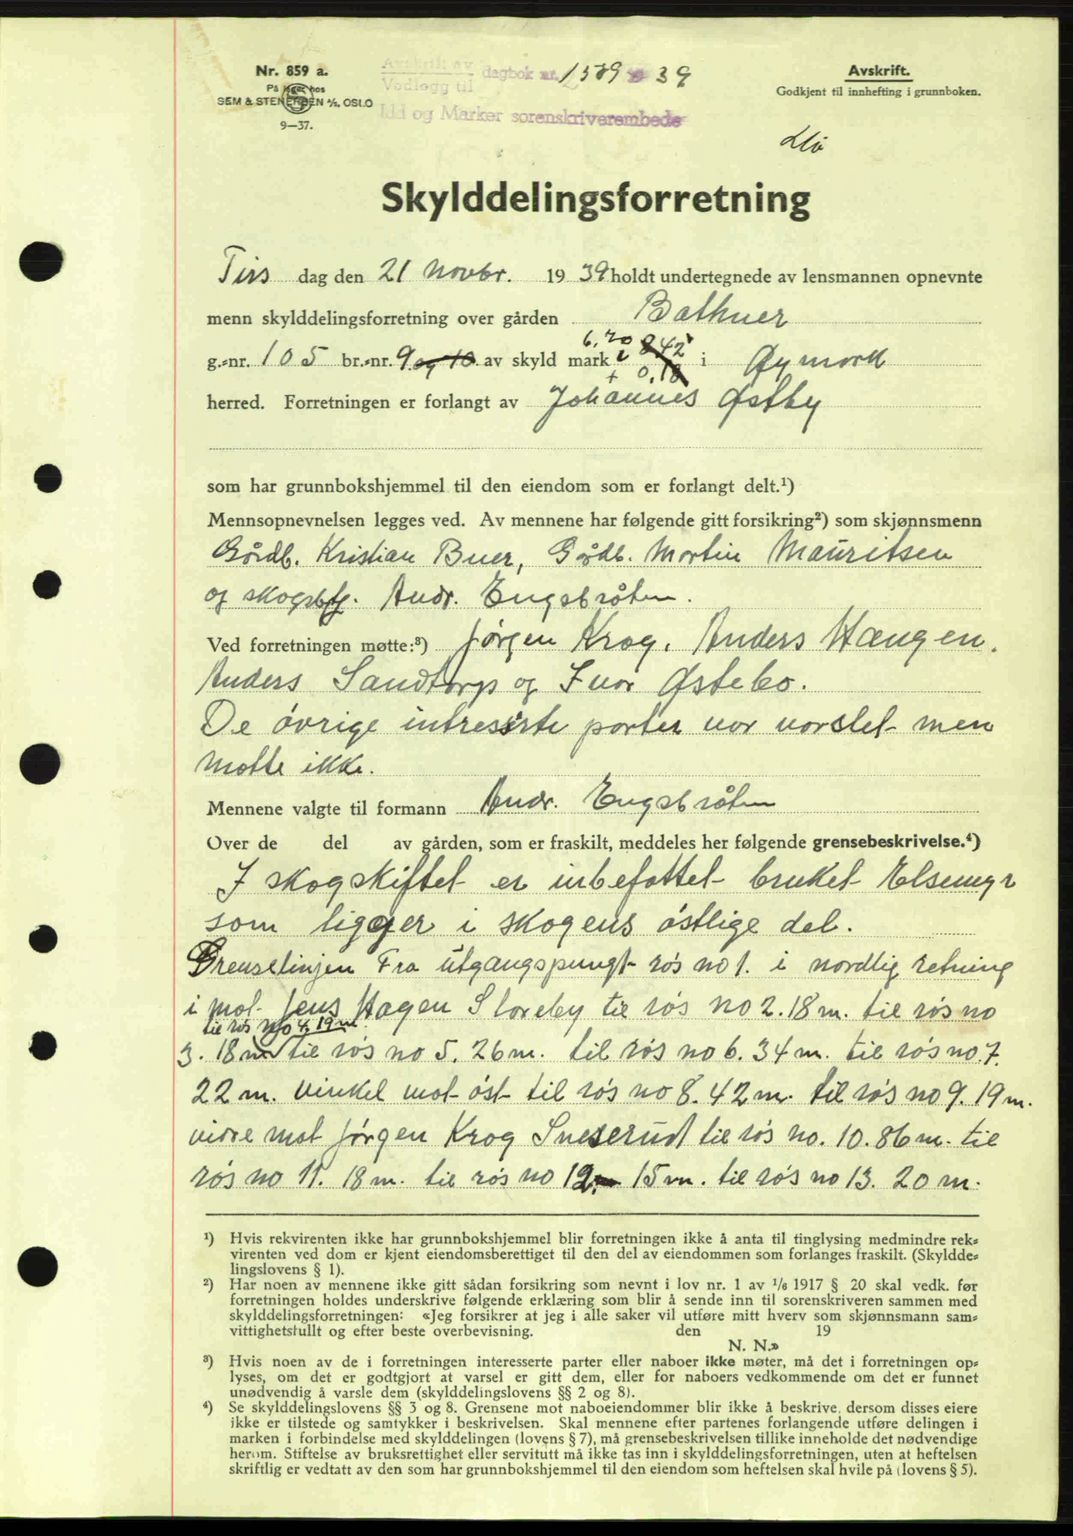 Nr. 859 a.
På lager hos
SEM & STENERSEN A/S, OSLO
9—37.
Avskrift av
Vedlegg til
dagbok nr. 1539 19 39
Idd og Marker sorenskriverembede
Avskrift.
Godkjent til innhefting i grunnboken.
Skylddelingsforretning
Tirs dag den 21 novbr. 19 39 holdt undertegnede av lensmannen opnevnte
menn skylddelingsforretning over gården Bathner
6.70
g.-nr. 105 br.-nr. 9 og 10 av skyld mark 842 i Øymark
+ 0.18
herred. Forretningen er forlangt av Johannes Østby
som har grunnbokshjemmel til den eiendom som er forlangt delt.¹)
Mennsopnevnelsen legges ved. Av mennene har følgende gitt forsikring²) som skjønnsmenn
Gårdb. Kristian Buer, Gårdb. Martin Mauritsen
og skogsbfg. Andr. Engsbråten.
Ved forretningen møtte:³) Jørgen Krog, Anders Haugen.
Anders Sandtorp og Ivar Østebo.
De øvrige intreserte parter var varslet men
møtte ikke.
Mennene valgte til formann Andr. Engsbråten
Over de del av gården, som er fraskilt, meddeles her følgende grensebeskrivelse.⁴)
I skogskiftet er inbefattet bruket Elsemyr
som ligger i skogens østlige del.
Grenselinjen Fra utgangspungt røs no 1. i nordlig retning
i mot Jens Hagen Sloreby til røs no 2. 18 m. til røs no
til røs no 4. 19 m.
3. 18 m til røs no 5. 26 m. til røs no 6. 34 m. til røs no. 7.
22 m. vinkel mot øst til røs no 8. 42 m. til røs no 9. 19 m.
vidre mot Jørgen Krog Sneserud til røs no. 10. 86 m. til
røs no 11. 18 m. til røs no 12. 15 m. til røs no 13. 20 m.
¹) Hvis rekvirenten ikke har grunnbokshjemmel blir forretningen ikke å anta til tinglysing medmindre rek-
virenten ved dom er kjent eiendomsberettiget til den del av eiendommen som forlanges fraskilt. (Skyldde-
lingslovens § 1).
²) Har noen av mennene ikke gitt sådan forsikring som nevnt i lov nr. 1 av 1/6 1917 § 20 skal vedk. før
forretningen holdes underskrive følgende erklæring som blir å sende inn til sorenskriveren sammen med
skylddelingsforretningen: «Jeg forsikrer at jeg i alle saker vil utføre mitt hverv som skjønnsmann sam-
vittighetsfullt og efter beste overbevisning. den 19
N. N.»
³) Hvis noen av de i forretningen interesserte parter eller naboer ikke møter, må det i forretningen op-
lyses, om det er godtgjort at varsel er gitt dem, eller for naboers vedkommende om det er funnet
unødvendig å varsle dem (skylddelingslovens §§ 2 og 8).
⁴) Se skylddelingslovens §§ 3 og 8. Grensene mot naboeiendommer blir ikke å beskrive, dersom disses eiere
ikke er tilstede og samtykker i beskrivelsen. Skal mennene efter partenes forlangende utføre delingen i
marken i forbindelse med skylddelingen (lovens § 7), må grensebeskrivelsen tillike inneholde det nødvendige
herom. Stiftelse av bruksrettighet eller servitutt må ikke tas inn i skylddelingsforretningen, uten at heftelsen
skriftlig er vedtatt av den som har grunnbokshjemmel til den eiendom som heftelsen skal hvile på (lovens § 5).